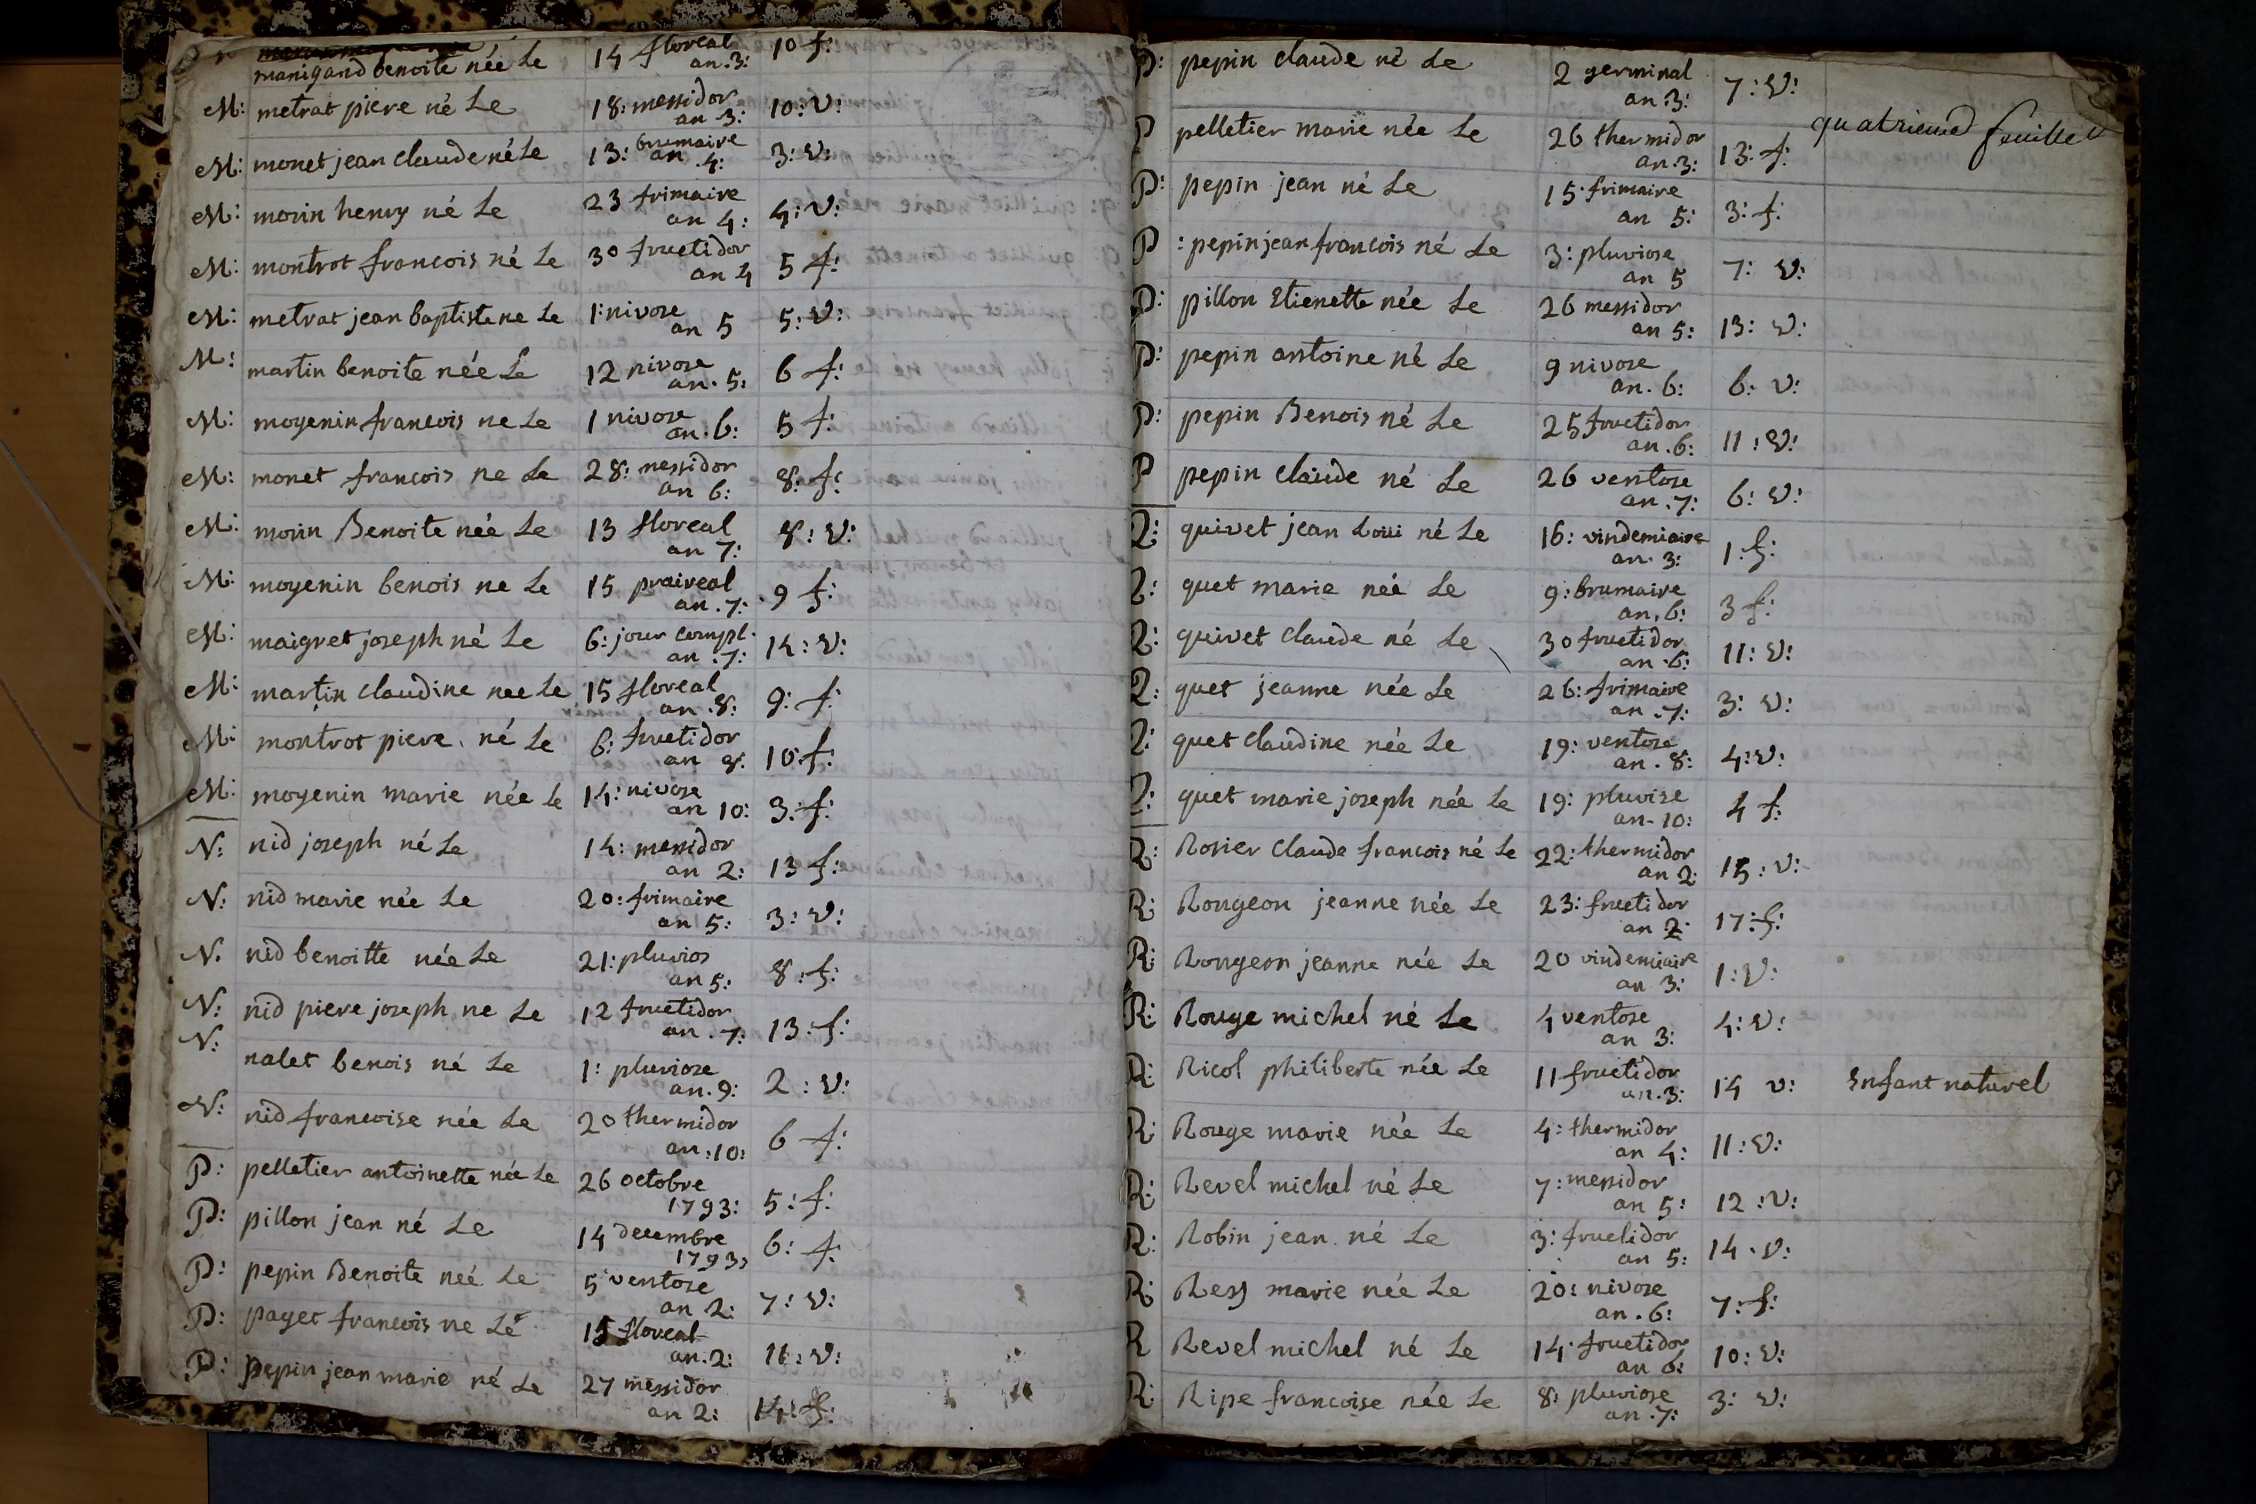 manigand benoite née Le 14 floreal an .3: 10 f:
M: metrat piere né Le 18: messidor an .3: 10: V:
M: monet jean claude né Le 13: brumaire an .4: 3: V:
M: morin henry né Le 23 frimaire an 4: 4: V:
M: montrot francois né Le 30 fructidor an 4 5 f:
M: metrat jean baptiste ne Le 1: nivose an 5 5: V:
M: martin benoite née Le 12 nivose an. 5: 6 f:
M: moyenin francois ne Le 1 nivose an. 6: 5 f:
M: monet francois ne Le 28: messidor an 6: 8: f:
M: morin Benoite née Le 13 floreal an 7: 8: V:
M: moyenin benois ne Le 15 praireal an .7: 9 f:
M: maigret joseph né Le 6: jour compl. an .7: 14: V:
M: martin claudine nee Le 15 floreal an .8: 9: f:
M: montrot piere né Le 6: fructidor an 8: 10: f:
M: moyenin marie née Le 14: nivose an 10: 3: f:
N: nid joseph né Le 14: messidor an 2: 13 f:
N: nid marie née Le 20: frimaire an 5: 3: V:
N. nid benoitte née Le 21: pluvios an 5: 8: f:
N: nid piere joseph ne Le 12 fructidor an .7: 13: f:
N: nalet benois né Le 1: pluviose an. 9: 2: V:
N: nid francoise née Le 20 thermidor an: 10: 6 f:
P: pelletier antoinette née Le 26 octobre 1793: 5: f:
P: pillon jean né Le 14 decembre 1793, 6: f:
P: pepin Benoite neé Le 5 ventose an 2: 7: V:
P: payet francois ne Le 15 floreal an. 2: 11: V:
P: pepin jean marie né Le 27 messidor an 2: 14: f:
P: pepin claude né Le 2 germinal an .3: 7: V:
quatrieme feuillet
P pelletier marie née Le 26 thermidor an .3: 13: f:
P: pepin jean né Le 15. frimaire an 5: 3: f:
P : pepin jean francois né Le 3: pluviose an 5 7: V:
P: pillon Etienette née Le 26 messidor an 5: 13: V:
P: pepin antoine né Le 9 nivose an. 6: 6: V:
P: pepin Benois né Le 25 fructidor an .6: 11: V:
P pepin claude né Le 26 ventose an .7: 6: V:
Q: quivet jean Loui né Le 16: vindemiaire an. 3: 1: f:
Q: quet marie née Le 9: brumaire an, 6: 3 f:
Q: quivet claude né Le 30 fructidor an .6: 11: V:
Q: quet jeanne née Le 26: frimaire an .7: 3: V:
Q: quet claudine née Le 19: ventose an. 8: 4: V:
Q: quet marie joseph née Le 19: pluvise an- 10: 4 f:
R: Rosier claude francois né Le 22: thermidor an 2: 15: V:
R: Rongeon jeanne née Le 23: fructidor an 2: 17: f:
R: Rongeon jeanne née Le 20 vindemiaire an 3: 1: V:
R: Rouge michel né Le 4 ventose an 3: 4: V:
R: Ricol philiberte née Le 11 fructidor an. 3: 14 V: Enfant naturel
R: Rouge marie née Le 4: thermidor an 4: 11: V:
R: Revel michel né Le 7: messidor an 5: 12: V:
R: Robin jean né Le 3: fructidor an 5: 14. V:
R: Rey marie née Le 20: nivose an. 6: 7: f:
R Revel michel né Le 14. fructidor an 6: 10: V:
R: Ripe francoise née Le 8: pluviose an .7: 3: V: